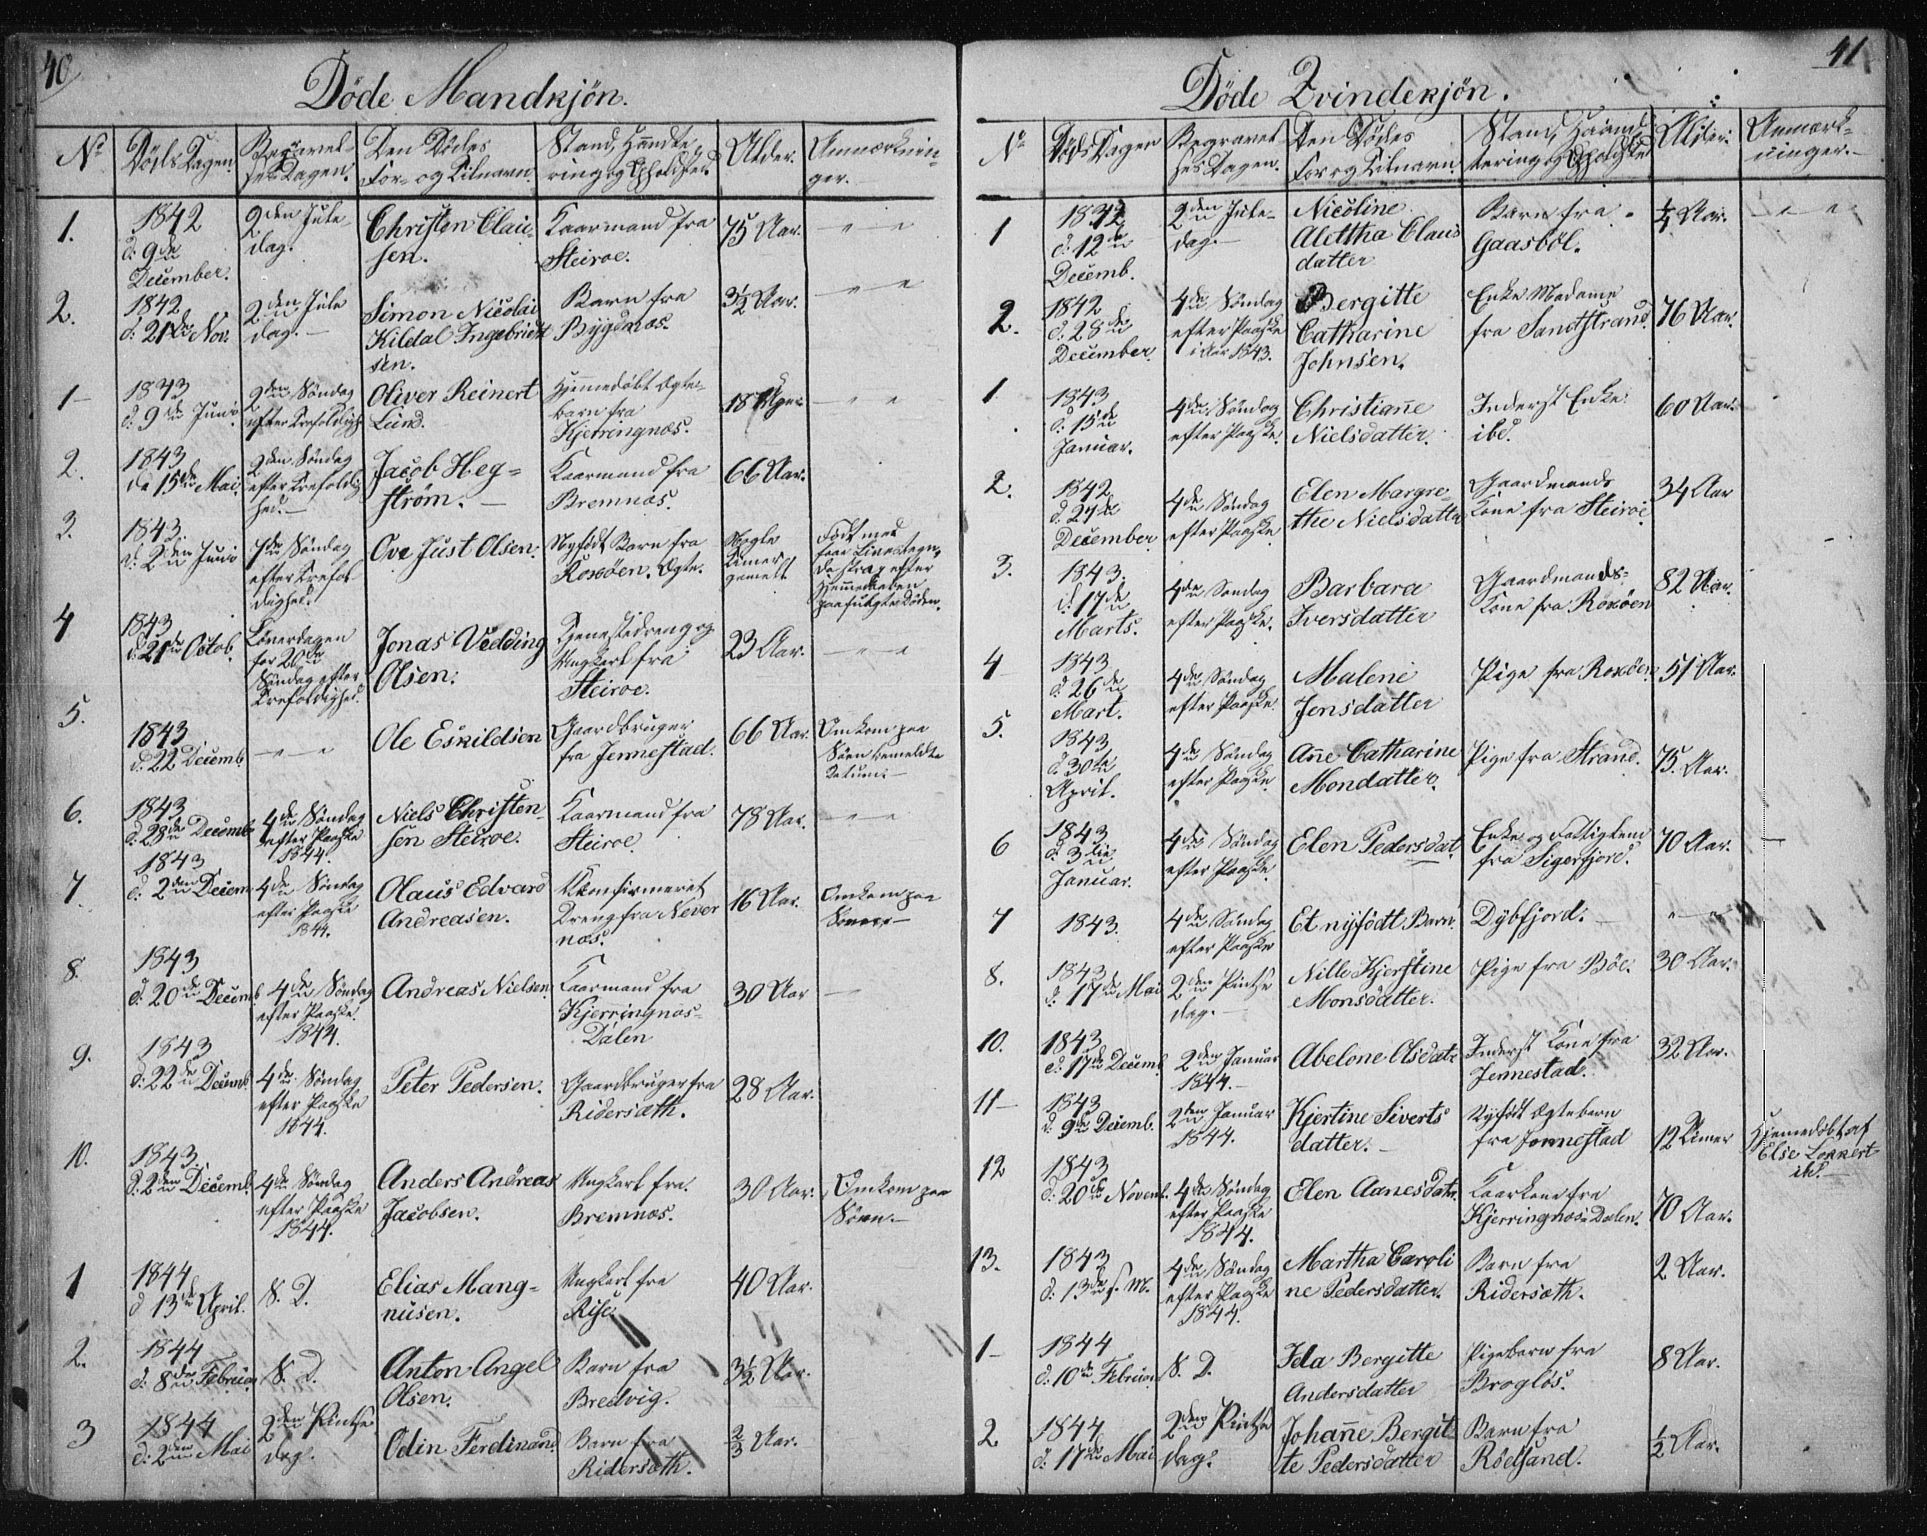 40
Döde Mandkjön.
No
Döds Dagen.
Begravel-
ses Dagen.
Den Dödes
For- og Tilnavn.
Stand, Handte-
ring og Opholdsted.
Alder.
Anmærknin-
ger.
1.
1842
d. 9de
December.
2den Jule-
dag.
Christen Clau-
sen.
Kaarmand fra
Steiroe.
75 Aar.
2.
1842.
d. 21de Nov.
2den Jule
dag.
Simon Nicolai
Kildal Ingebrigt
sen.
Barn fra
Bygdnæs.
3½ Aar.
1
1843
d. 9de Juni
2den Söndag
efter Trefoldigh.
Oliver Reinert
Lund.
Hjemmedöbt Ægte-
barn fra
Kjerringnæs.
18 Uger
2.
1843
de 15de Mai.
2den Söndag
efter Trefoldig
hed.
Jacob Hey-
ström.
Kaarmand fra
Bremnæs.
66 Aar.
3.
1843.
d. 2den Juni
7de Söndag
efter Trefol-
dighed.
Ove Just Olsen.
Nyfödt Barn fra
Roxöen. Ægte.
Nogle
Timer
gammelt
Födt med
faae Livestegn,
da strax efter
Hjemmedaaben
paafulgte Döden.
4
1843
d. 21de Octob.
Löverdagen
för 20de
Söndag efter
Trefoldighed.
Jonas Vedding
Olsen.
Tjenestedreng og
Ungkarl fra
Steiroe.
23 Aar.
5.
1843
d. 22 Decemb.
Ole Eskildsen
Gaardbruger
fra Jennestad.
66 Aar.
Omkom paa
Söen bemeldte
Datum.
6.
1843
d. 28de Decemb
4de Söndag
efter Paaske
1844.
Niels Christen-
sen Steiroe.
Kaarmand fra
Steiroe.
78 Aar.
7.
1843
d. 2den Decem
4de Söndag
efter Paaske
1844.
Olaus Edvard
Andreasen.
Ukonfirmeret
Dreng fra Never
næs.
16 Aar.
Omkom paa
Söen
8.
1843
d. 20de Decemb
4de Söndag
efter Paaske.
1844.
Andreas Nielsen.
Kaarmand fra
Kjerringnæs-
Dalen
30 Aar
9.
1843
d. 22de Decemb
4de Söndag
efter Paaske
1844.
Peter Pedersen.
Gaardbruger fra
Ridersæth.
28 Aar.
10.
1843.
d. 2den Decemb.
4de Söndag
efter Paaske
1844.
Anders Andreas
Jacobsen.
Ungkarl fra
Bremnæs.
30 Aar.
Omkom paa
Söen.
1
1844
d 13de April.
S. D.
Elias Mang-
nusen.
Ungkarl fra
Rise.
40 Aar.
2.
1844
d. 8de Februar
S. D.
Anton Angel
Olsen.
Barn fra
Bredvig.
3½ Aar.
3
1844
d. 2den Mai
2den Pintse
dag.
Odin Ferdinand
Barn fra
Ridersæth.
⅔ Aar.
41
Döde Qvindekjön.
No
Döds Dagen
Begravel
ses Dagen.
Den Dödes
For og Tilnavn.
Stand, Haand-
tering og Opholdsted
Alder.
Anmærk-
ninger.
1
1842
d. 12de
Decemb.
2den Jule-
dag.
Nicoline
Alettha Claus
datter
Barn fra
Gaasböl.
¼ Aar.
2.
1842
d. 28de
December.
4de Söndag
efter Paaske
i Aar 1843.
Bergitte
Catharine
Johnsen.
Enke Madame
fra Sandstrand.
76 Aar.
1
1843
d. 15de
Januar.
4de Söndag
efter Paaske.
Christiane
Nielsdatter.
Inderst Enke
ibd.
60 Aar.
2.
1842
d. 27de
December.
4de Söndag
efter Paaske.
Elen Margre-
the Nielsdatter
Gaardmands
Kone fra Steiroe
34 Aar
3.
1843.
d. 17de
Marts.
4de Söndag
efter Paaske.
Barbara
Iversdatter
Gaardmands-
Kone fra Roxöen
82 Aar.
4
1843
d. 26de
Mart.
4de Söndag
efter Paaske.
Malene
Jensdatter
Pige fra Roxöen.
51 Aar.
5.
1843
d. 30te
April.
4de Söndag
efter Paaske.
Ane Catharine
Monsdatter.
Pige fra Strand.
75. Aar.
6
1843
d. 3die
Januar.
4de Söndag
efter Paaske.
Elen Pedersdat.
Enke og Fattiglem
fra Sigerfjord.
70 Aar.
7
1843.
4de Söndag
efter Paaske
Et nyfödt Barn.
Dybfjord.
8.
1843
d. 17de Mai
2den Pintse
dag.
Nille Kjerstine
Monsdatter.
Pige fra Böe.
30 Aar.
10.
1843
d. 17de Decemb.
2den Januar
1844.
Abelone Olsdatr
Inderst Kone fra
Jennestad.
32 Aar.
11
1843
d. 9de Decemb.
2den Januar
1844.
Kjertine Siverts
datter.
Nyfödt Ægtebarn
fra Jennestad
12 Timer
Hjemmedöbt af
Else Lokkert
ibd.
12
1843
d. 20de Novemb.
4de Söndag
efter Paaske
1844.
Elen Aanesdatr.
Kaarkone fra
Kjerringnæs-Dalen.
70 Aar.
13.
1843
d. 13de f. M.
4de Söndag
efter Paaske
1844.
Martha Caroli
ne Pedersdatter.
Barn fra
Ridersæth.
2 Aar.
1
1844
d. 10de Februar
S. D.
Ida Bergitte
Andersdatter
Pigebarn fra
Brogløs.
8 Aar.
2
1844
d. 17de Mai
2den Pintse
dag.
Johanne Bergit
te Pedersdatter
Barn fra
Rödsand.
½ Aar.